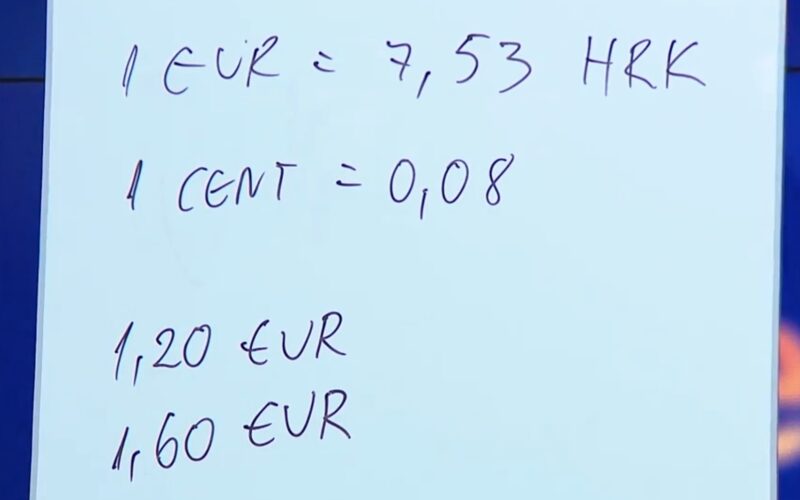 1 EUR = 7,53 HRK
1 CENT = 0,08
1,20 EUR
1,60 EUR